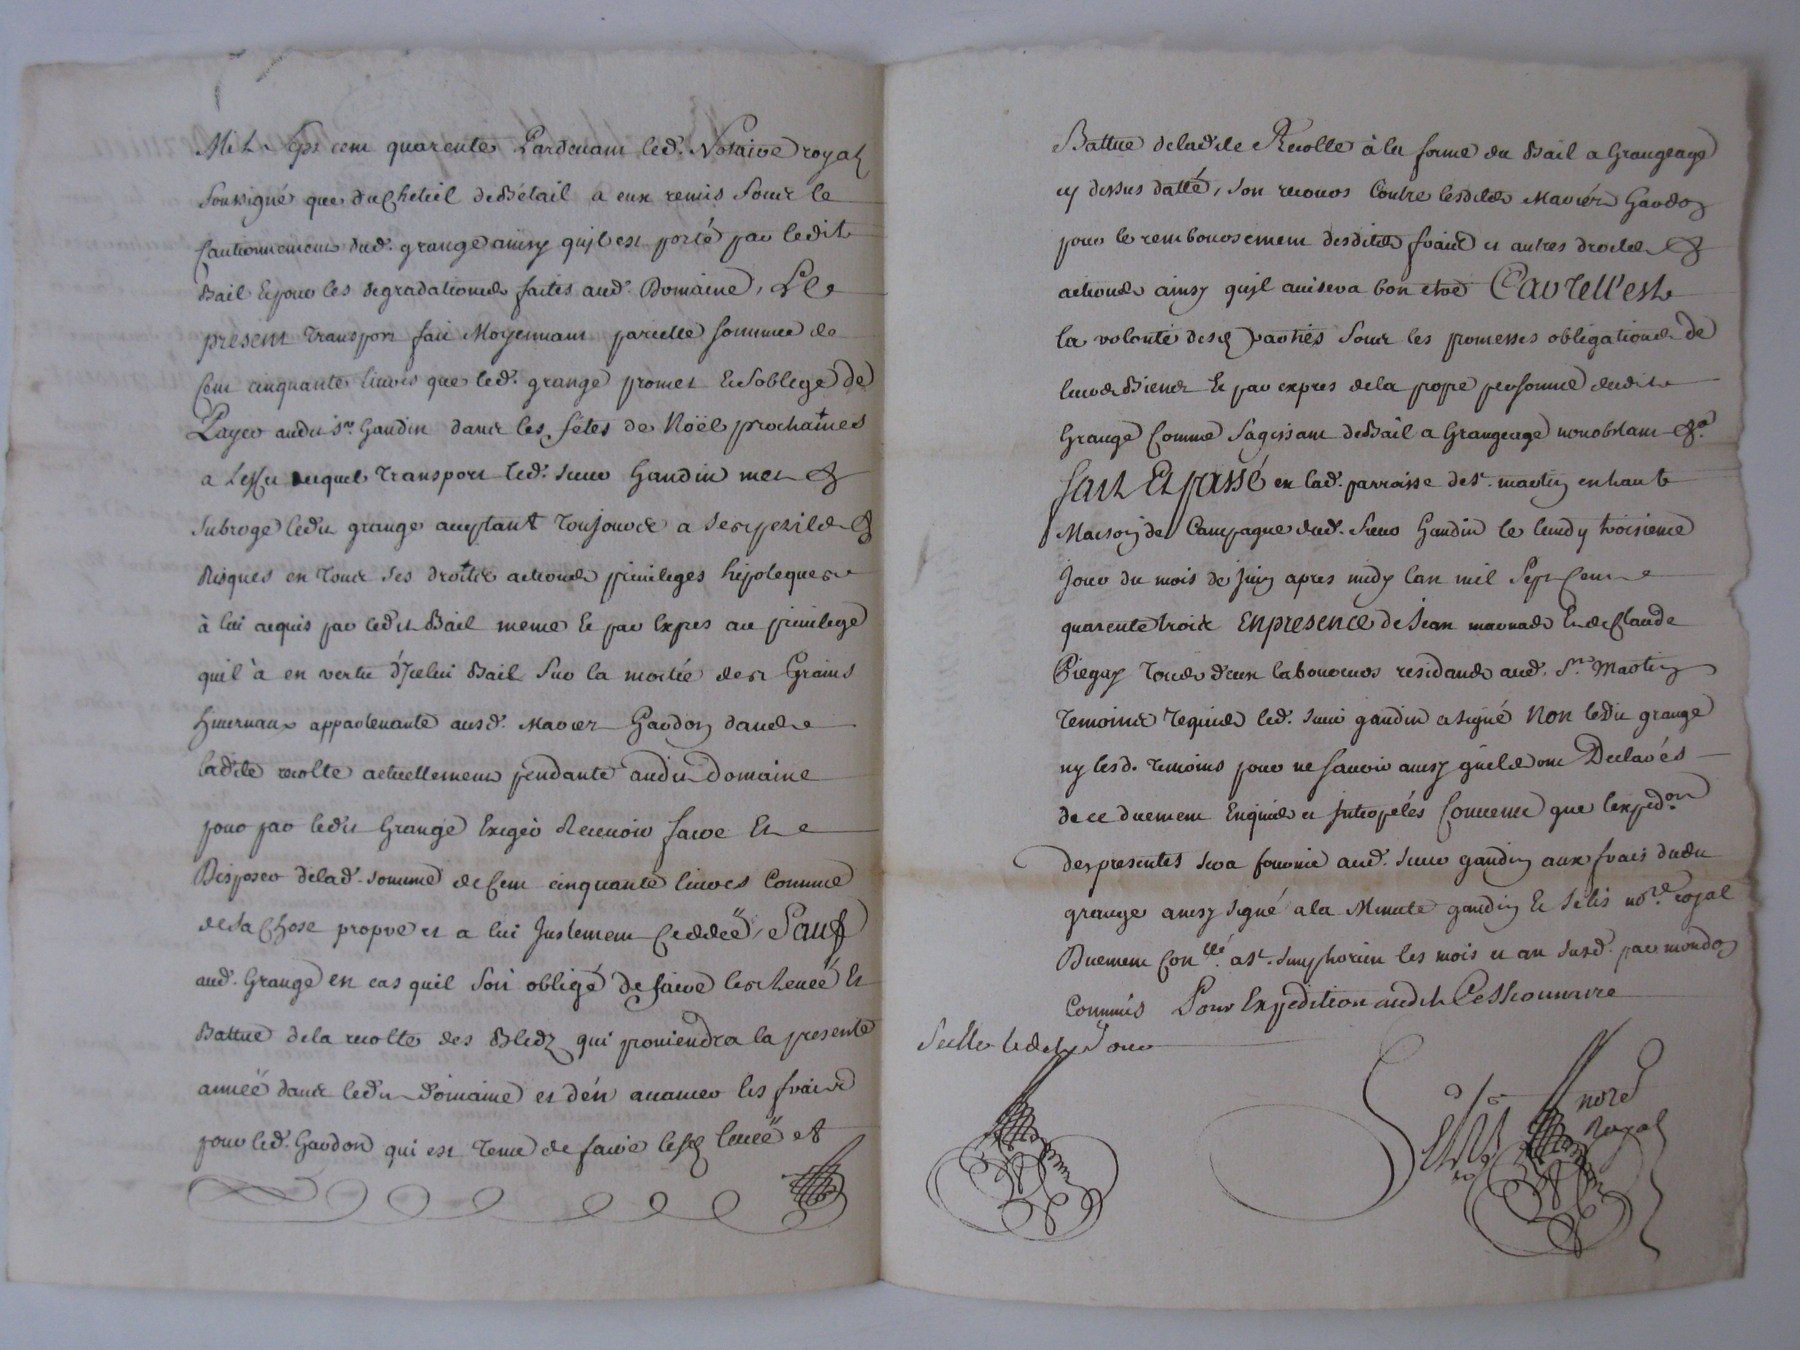 Mil Sept cent quarente Pardevant led. Notaire royal
Soussigné que du Cheteil de Bétail a eux remis Sous le
Cautionnement dud. grange ainsy qu'jl est porté par ledit
Bail Et pour les degradations faites aud. Domaine, Le
present transport fait Moyennant pareille somme de
Cent cinquante livres que led. grange promet Et s'oblige de
Payer audit Sr. Gaudin dans les fêtes de Noël prochaines
a L'effet duquel transport led. Sieur Gaudin met &
Subroge ledit grange acceptant toujours a ses perils &
Risques en tous ses droits actions privileges hipoteques
à lui acquis par ledit Bail meme Et par Expres au privilege
quil à en vertu d'Jcelui Bail Sur la moitié des Grains
hivernaux appartenants ausd. Mavier Gardon dans
ladite recolte actuellement pendante audit Domaine
pour par ledit Grange Exiger Recevoir faire Et
Disposer de lad. somme de Cent cinquante livres Comme
de Sa Chose propre et a lui Justement Ceddeë, Sauf
aud. Grange en cas quil Soit obligé de faire les Leveé Et
Battue de la recolte des Bledz qui proviendra la presente
anneë dans ledit Domaine et d'en avancer les frais
pour led. Gardon qui est tenu de faire lesd. leveë et
Battue de ladite Recolte à la forme du Bail a Grangeage
cy dessus datté, son recours Contre lesdits Mavier Gardon
pour le remboursement desdits frais et autres droits &
actions ainsy qu'jl avisera bon etre Car telle est
la volonté desd. parties Sous les promesses obligations de
leurs Biens Et par expres de la propre personne dudit
Grange Comme S'agissant de Bail a Grangeage nonobstant &a.
Fait Et passé en lad. parroisse de St. martin en haut
Maison de Campagne dud. Sieur Gaudin le lundy troisieme
Jour du mois de Juin apres midy l'an mil Sept Cent
quarente trois En presence de Jean Et de Claude
Piegay tous deux laboureurs residants aud. St. Martin
temoins requis led. Sieur gaudin a signé Non ledit grange
ny lesd. temoins pour ne sçavoir ainsy qu'ils ont Declarés
de ce duement Enquis et Jnterpelés Convenu que l'exped.on
des presentes sera fournie aud. Sieur gaudin aux frais dudit
grange ainsy signé a la Minute gaudin Et notre. royal
Duement Con.llé a St. Simphorien les mois et an susd. par mondon
Commis Pour Expedition audit Cessionnaire
Scellé ledit Jour
nore
Royal